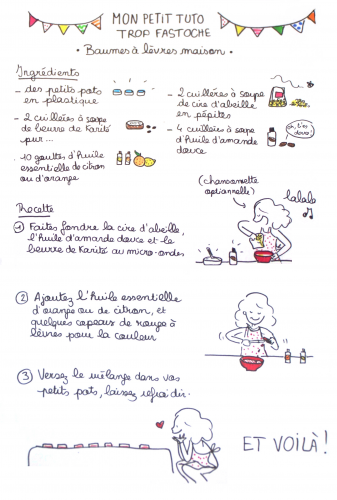 MON PETIT TUTO
TROP FASTOCHE
• Baumes à lèvres maison •
Ingrédients
- des petits pots
en plastique
- 2 cuillères à soupe
de beurre de Karité
pur...
- 10 gouttes d'huile
essentielle de citron
ou d'orange
- 2 cuillères à soupe
de cire d'abeille
en pépites
- 4 cuillères à soupe
d'huile d'amande
douce
(chansonnette
optionnelle)
lalala
Recette
1 Faites fondre la cire d'abeille,
l'huile d'amande douce et le
beurre de Karité au micro-ondes
2 Ajoutez l'huile essentielle
d'orange ou de citron, et
quelques copeaux de rouge à
lèvres pour la couleur
3 Versez le mélange dans vos
petits pots, laissez refroidir.
ET VOILÀ !